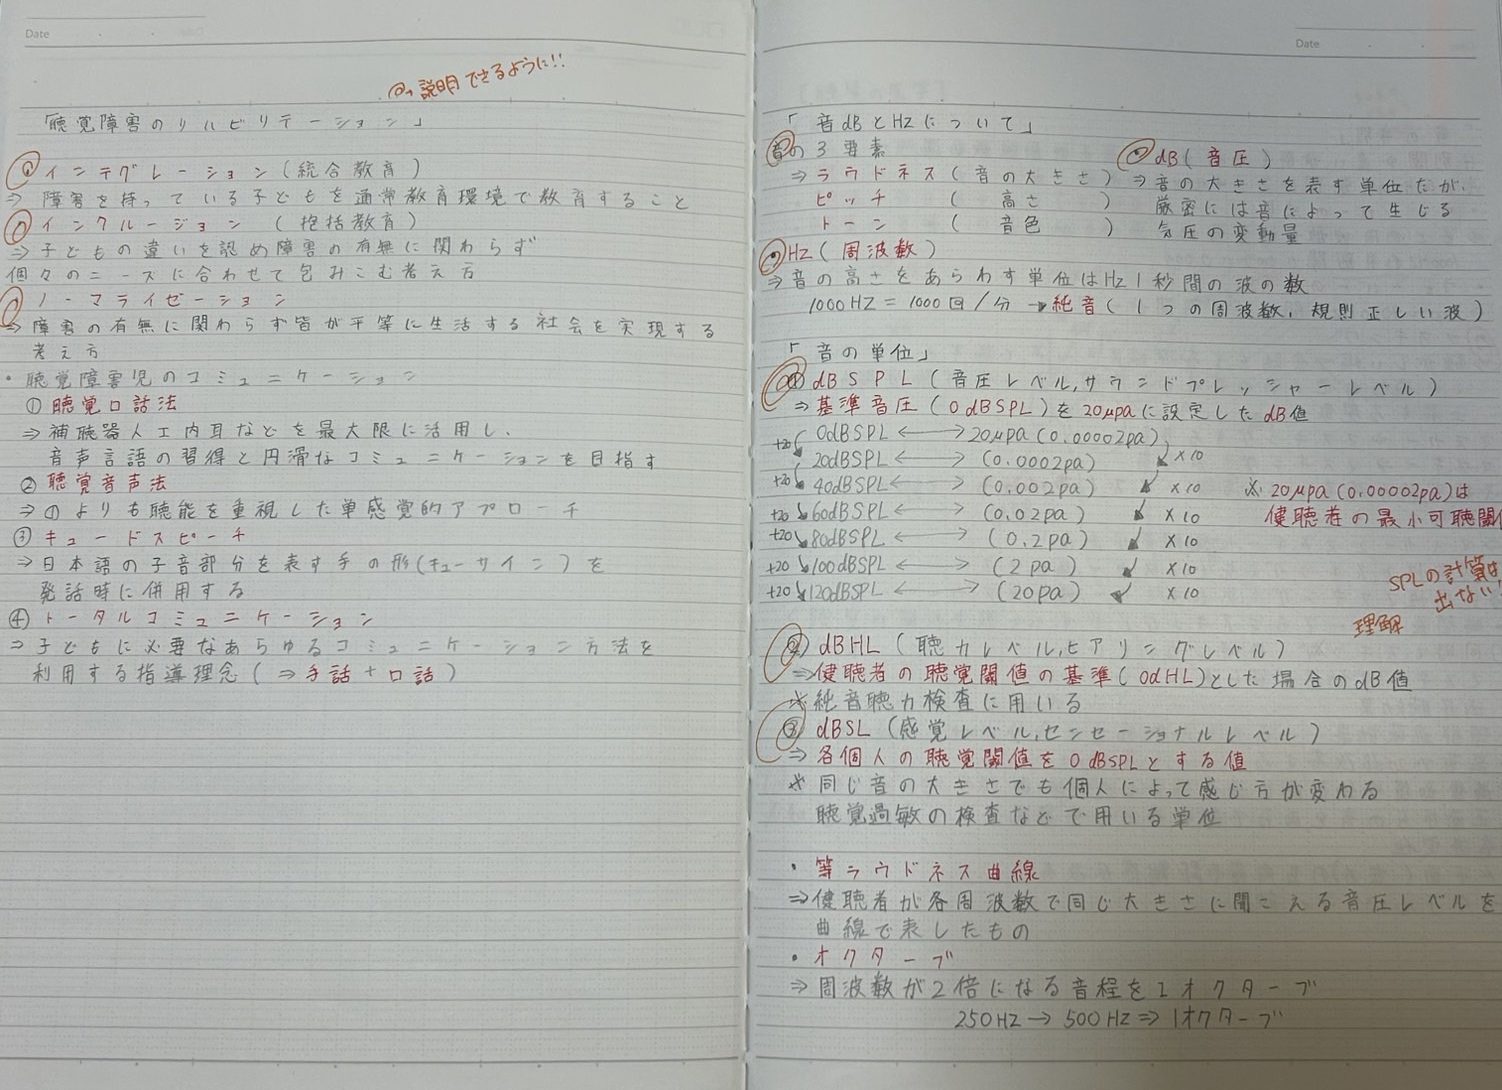 Date
◎→説明できるように!!
「聴覚障害のリハビリテーション」
◎インテグレーション(統合教育)
⇒ 障害を持っている子どもを通常教育環境で教育すること
◎インクルージョン (抱括教育)
⇒子どもの違いを認め障害の有無に関わらず
個々のニーズに合わせて包みこむ考え方
◎ノーマライゼーション
⇒障害の有無に関わらず皆が平等に生活する社会を実現する
考え方
・聴覚障害児のコミュニケーション
① 聴覚口話法
⇒ 補聴器人工内耳などを最大限に活用し、
音声言語の習得と円滑なコミュニケーションを目指す
② 聴覚音声法
⇒①よりも聴能を重視した単感覚的アプローチ
③ キュードスピーチ
⇒日本語の子音部分を表す手の形(キューサイン)を
発話時に併用する
④ トータルコミュニケーション
⇒子どもに必要なあらゆるコミュニケーション方法を
利用する指導理念(⇒手話+口話)
Date
「音dBとHzについて」
音の3要素
⇒ラウドネス(音の大きさ)
ピッチ (高さ)
トーン (音色)
◎dB(音圧)
⇒音の大きさを表す単位だが、
厳密には音によって生じる
気圧の変動量
◎HZ(周波数)
⇒音の高さをあらわす単位はHz1秒間の波の数
1000HZ=1000回/分 →純音(1つの周波数、規則正しい波)
「音の単位」
① dBSPL(音圧レベル,サウンドプレッシャーレベル)
⇒基準音圧(0dBSPL)を20μpaに設定したdB値
0dBSPL ↔ 20μpa(0.00002pa)
+20 20dBSPL ↔ (0.0002pa) ×10
+20 40dBSPL ↔ (0.002pa) ×10
※ 20μpa(0.00002pa)は
+20 60dBSPL ↔ (0.02pa) ×10
健聴者の最小可聴閾値
+20 80dBSPL ↔ (0.2pa) ×10
+20 100dBSPL ↔ (2pa) ×10
+20 120dBSPL ↔ (20pa) ×10
SPLの計算は
出ない
理解
② dBHL(聴力レベル,ヒアリングレベル)
⇒健聴者の聴覚閾値の基準(0dHL)とした場合のdB値
※純音聴力検査に用いる
③ dBSL(感覚レベル,センセーショナルレベル)
⇒ 各個人の聴覚閾値を0dBSPLとする値
※ 同じ音の大きさでも個人によって感じ方が変わる
聴覚過敏の検査などで用いる単位
・等ラウドネス曲線
⇒健聴者が各周波数で同じ大きさに聞こえる音圧レベルを
曲線で表したもの
・オクターブ
⇒周波数が2倍になる音程を1オクターブ
250HZ→500HZ⇒1オクターブ